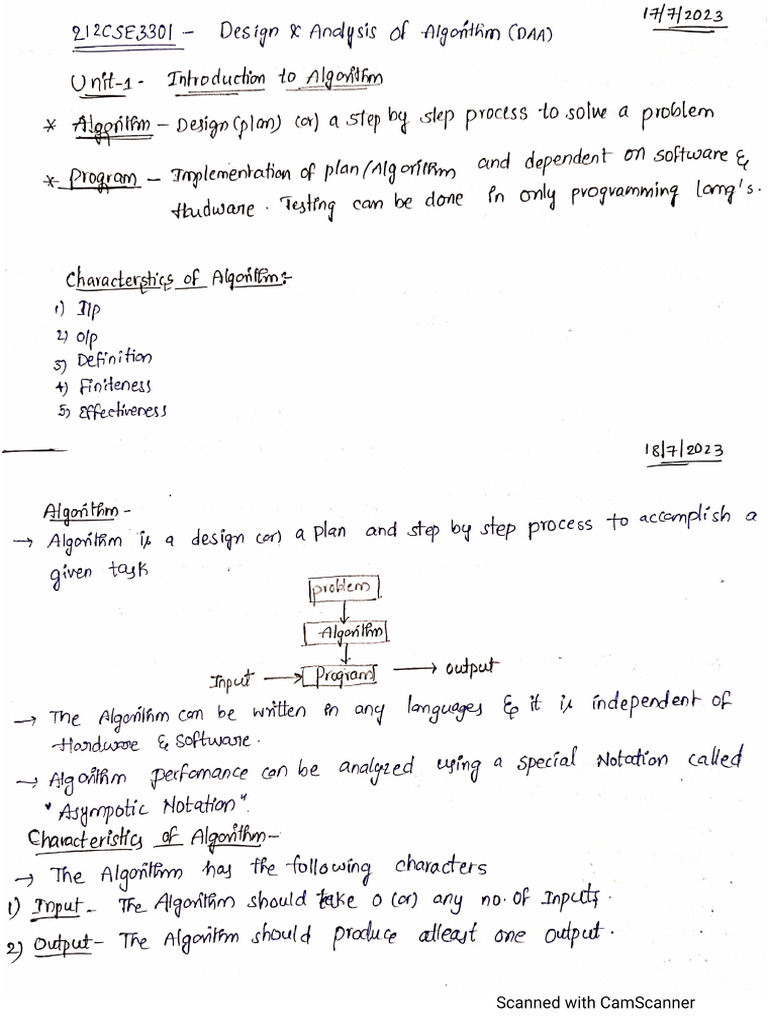 17/7/2023
212CSE3301 - Design & Analysis of Algorithm (DAA)
Unit-1- Introduction to Algorithm
* Algorithm - Design (plan) (or) a step by step process to solve a problem
* Program - Implementation of plan/Algorithm and dependent on software &
Hardware. Testing can be done in only programming lang's.
Characterstics of Algorithm:-
1) I/p
2) O/p
3) Definition
4) Finiteness
5) Effectiveness
18/7/2023
Algorithm -
→ Algorithm is a design (or) a plan and step by step process to accomplish a
given task
problem
Algorithm
Input → Program → output
→ The Algorithm can be written in any languages & it is independent of
Hardware & Software.
→ Algorithm perfomance can be analyzed using a special Notation called
"Asympotic Notation".
Characteristics of Algorithm-
→ The Algorithm has the following characters
1) Input - The Algorithm should take 0 (or) any no. of Inputs.
2) Output - The Algorithm should produce atleast one output.
Scanned with CamScanner